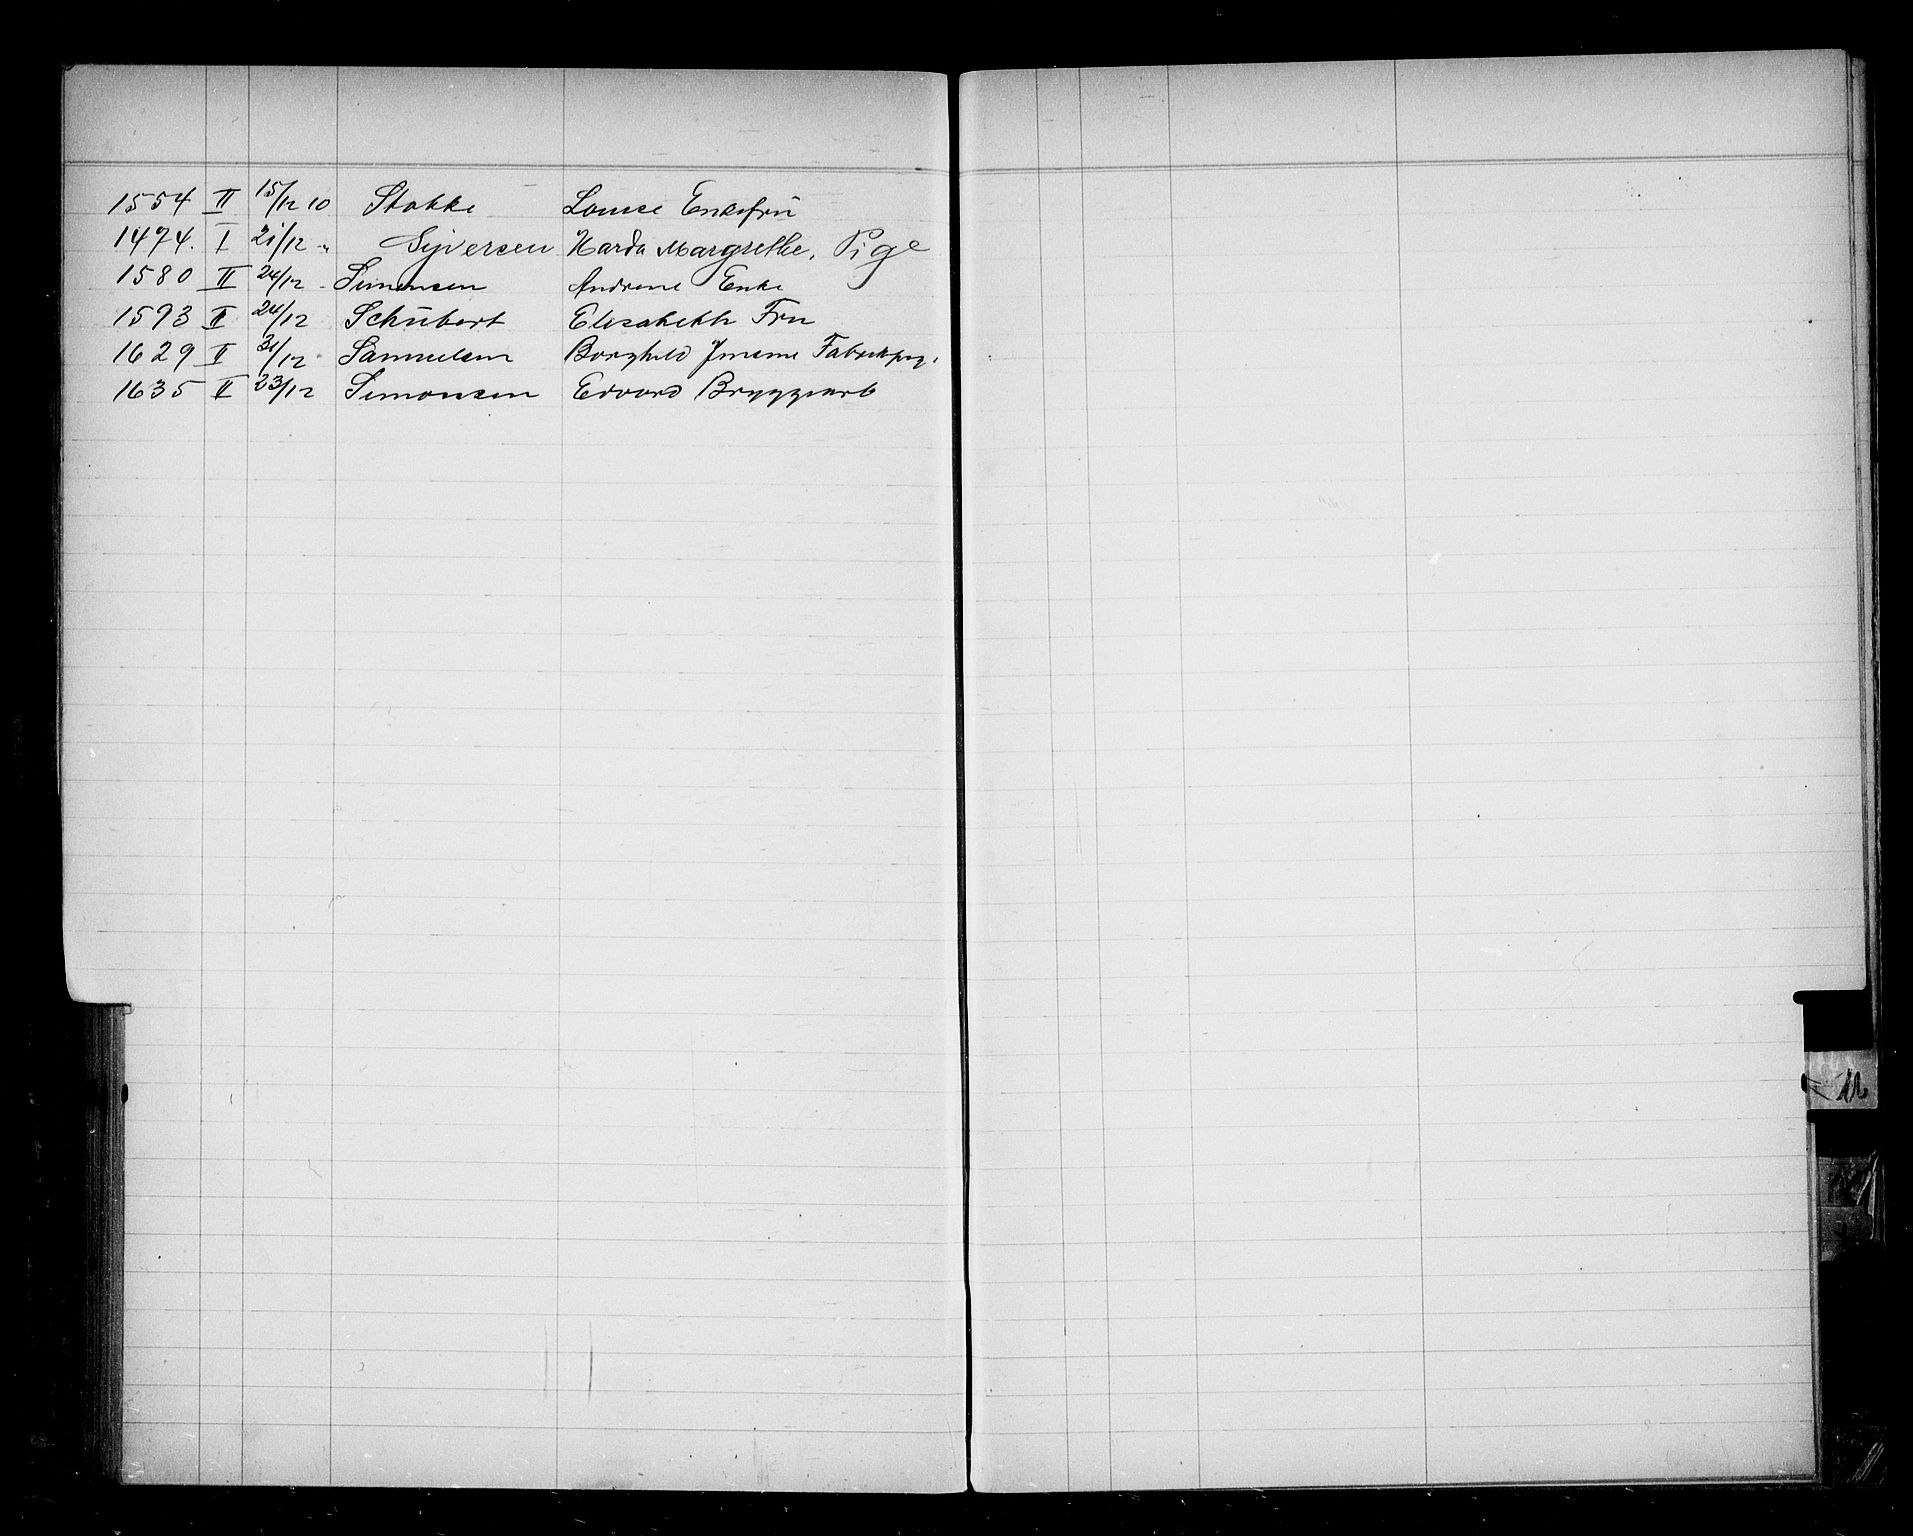 1554 II 15/12 10 Stokke Louise Enkefru
1474. I 21/12 " Syversen Harda Margrethe, Pige
1580 II 24/12 Simensen Andrene Enke
1593 II 24/12 Schubert Elisabeth Fru
1629 II 31/12 Samuelsen Borghild Fabrikpig.
1635 II 23/12 Simonsen Edvard Bryggearb